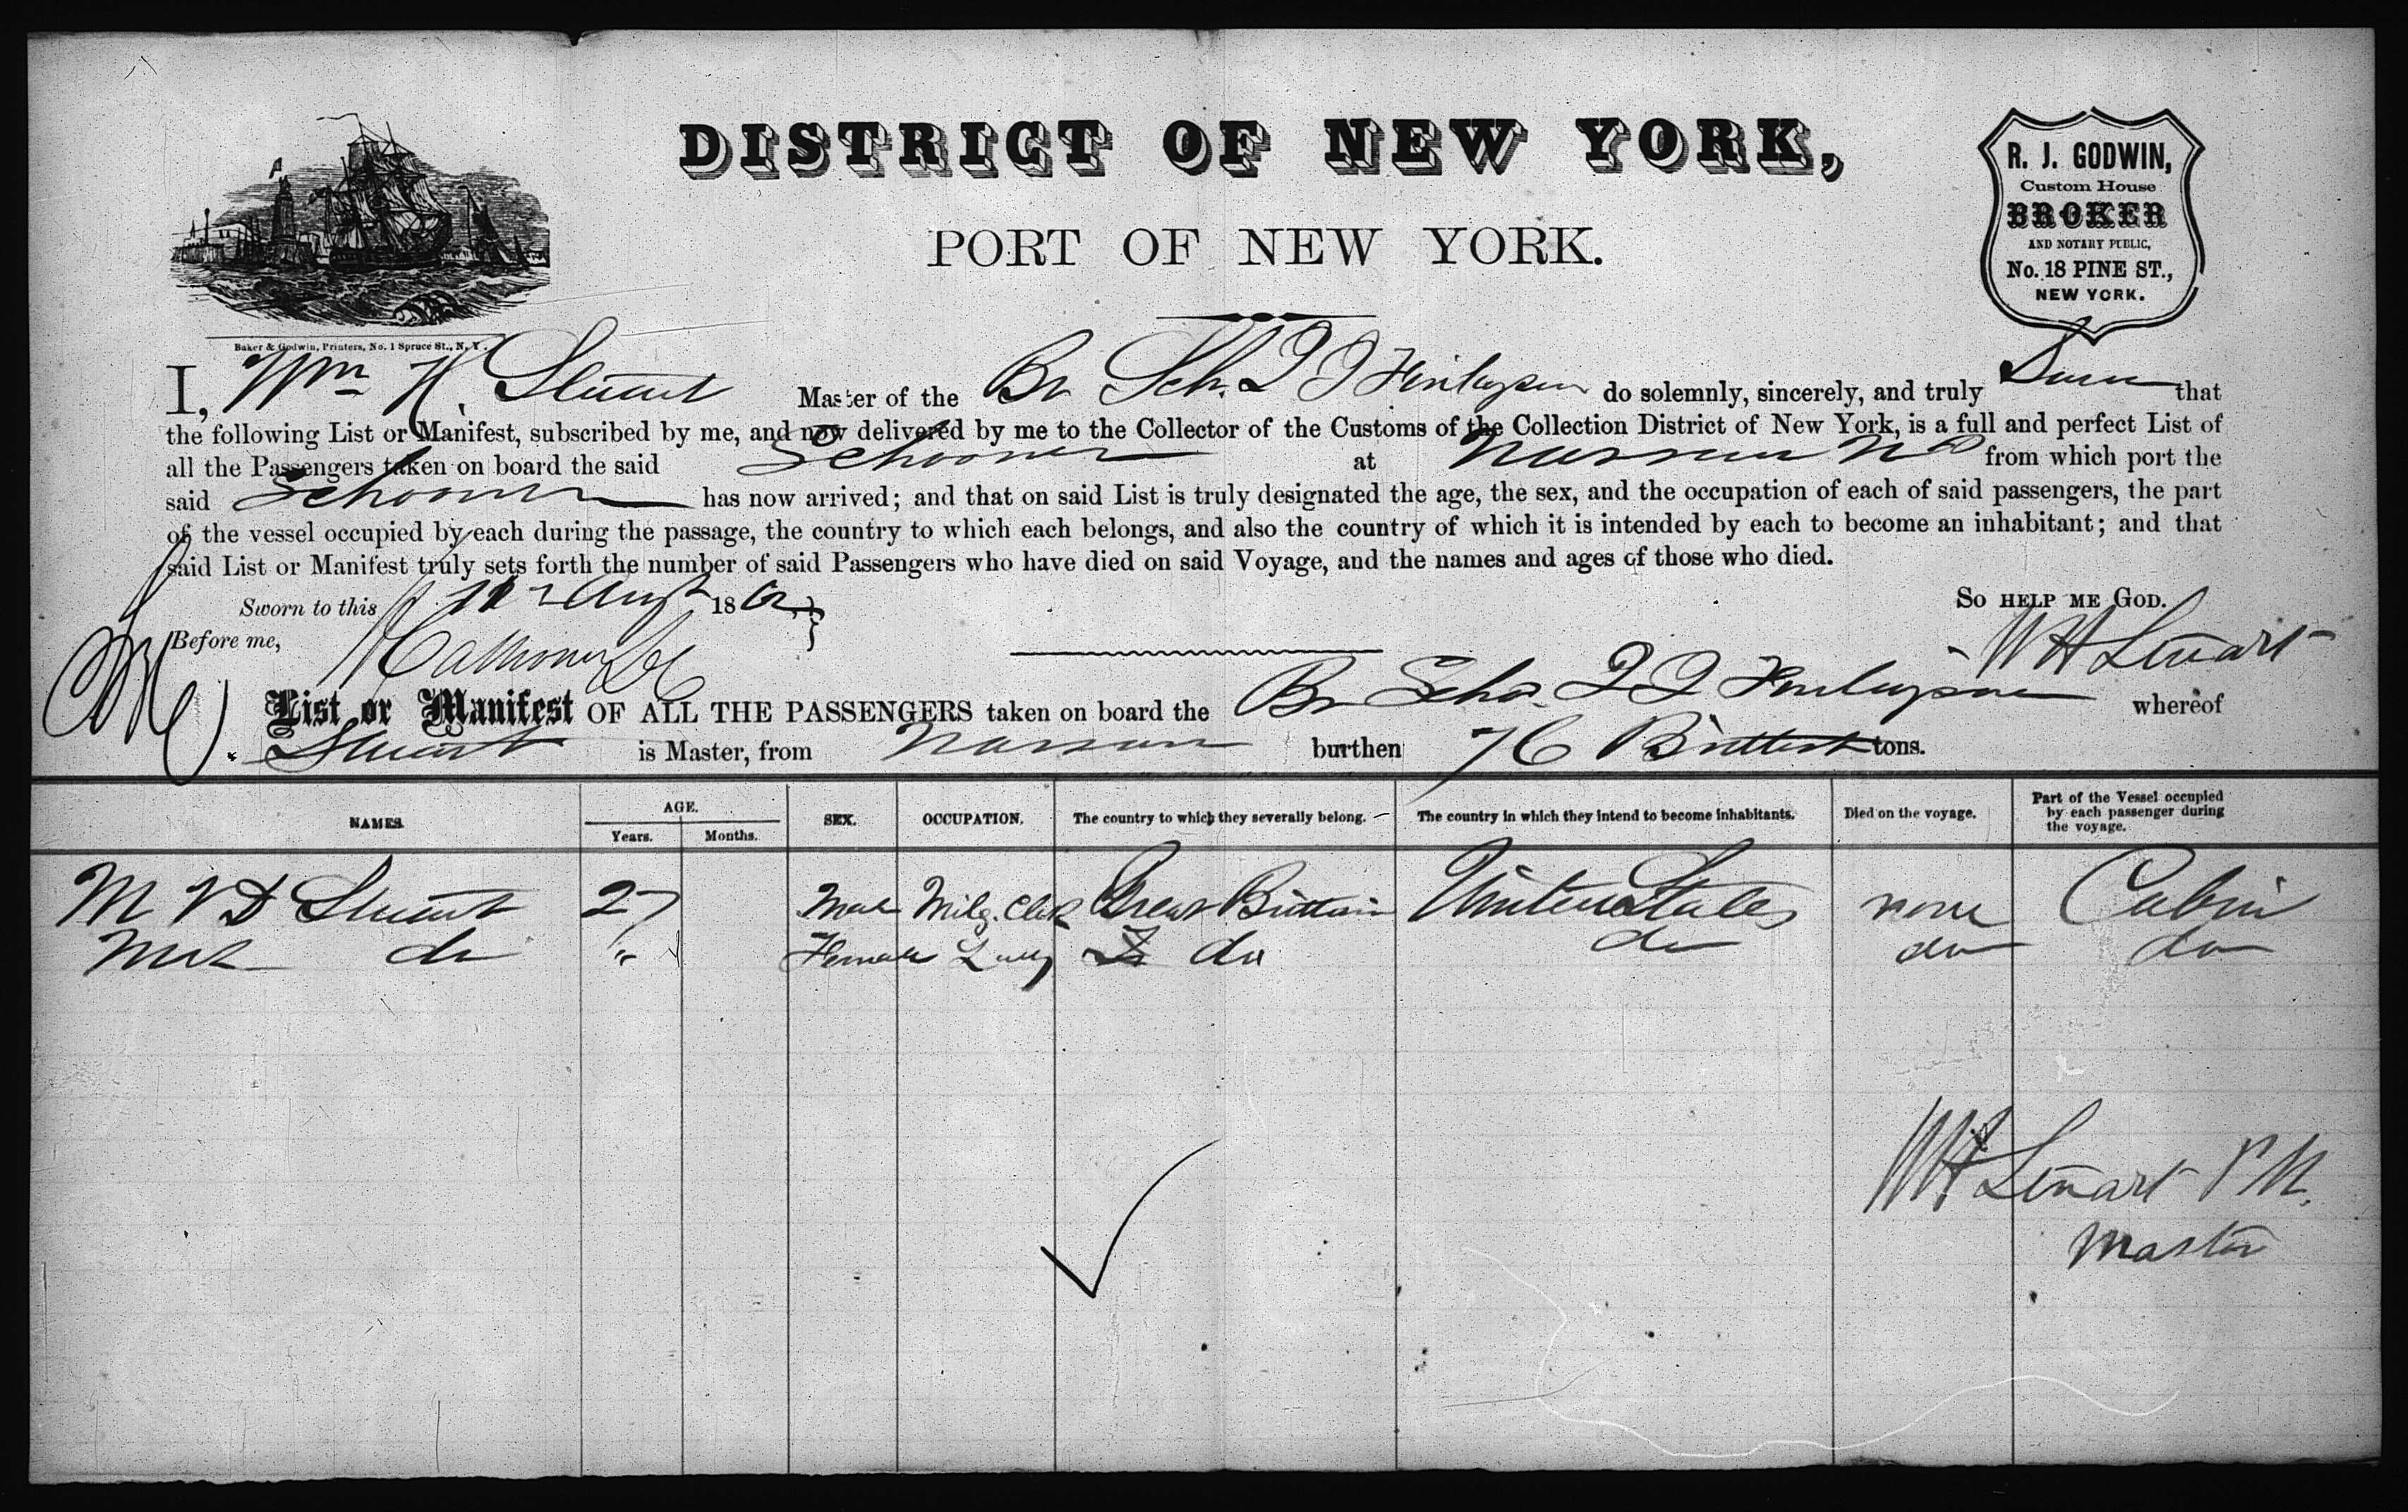 DISTRICT OF NEW YORK,
PORT OF NEW YORK.
R. J. GODWIN,
Custom House
BROKER
AND NOTARY PUBLIC,
No. 18 PINE ST.,
NEW YORK.
Baker & Godwin, Printers, No. 1 Spruce St., N. Y.
I, Wm H. Stuart Master of the Br Sch. do solemnly, sincerely, and truly that
the following List or Manifest, subscribed by me, and now delivered by me to the Collector of the Customs of the Collection District of New York, is a full and perfect List of
all the Passengers taken on board the said Schooner at Nassau N P from which port the
said Schooner has now arrived; and that on said List is truly designated the age, the sex, and the occupation of each of said passengers, the part
of the vessel occupied by each during the passage, the country to which each belongs, and also the country of which it is intended by each to become an inhabitant; and that
said List or Manifest truly sets forth the number of said Passengers who have died on said Voyage, and the names and ages of those who died.
Sworn to this Augt 186
So HELP ME GOD.
Before me,
W H Stuart
List or Manifest OF ALL THE PASSENGERS taken on board the Br Schr. whereof
Stuart is Master, from Nassau burthen 76 tons.
NAMES. AGE. Years. Months. SEX. OCCUPATION. The country to which they severally belong. The country in which they intend to become inhabitants. Died on the voyage. Part of the Vessel occupied by each passenger during the voyage.
M V D Stuart 27 Male Great Brittain United States none Cabin
Mrs do " Female Lady do do do do
W H Stuart
Master